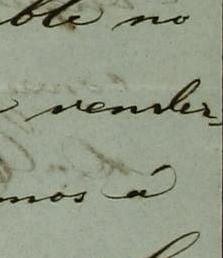 ble no
vender,
mos á